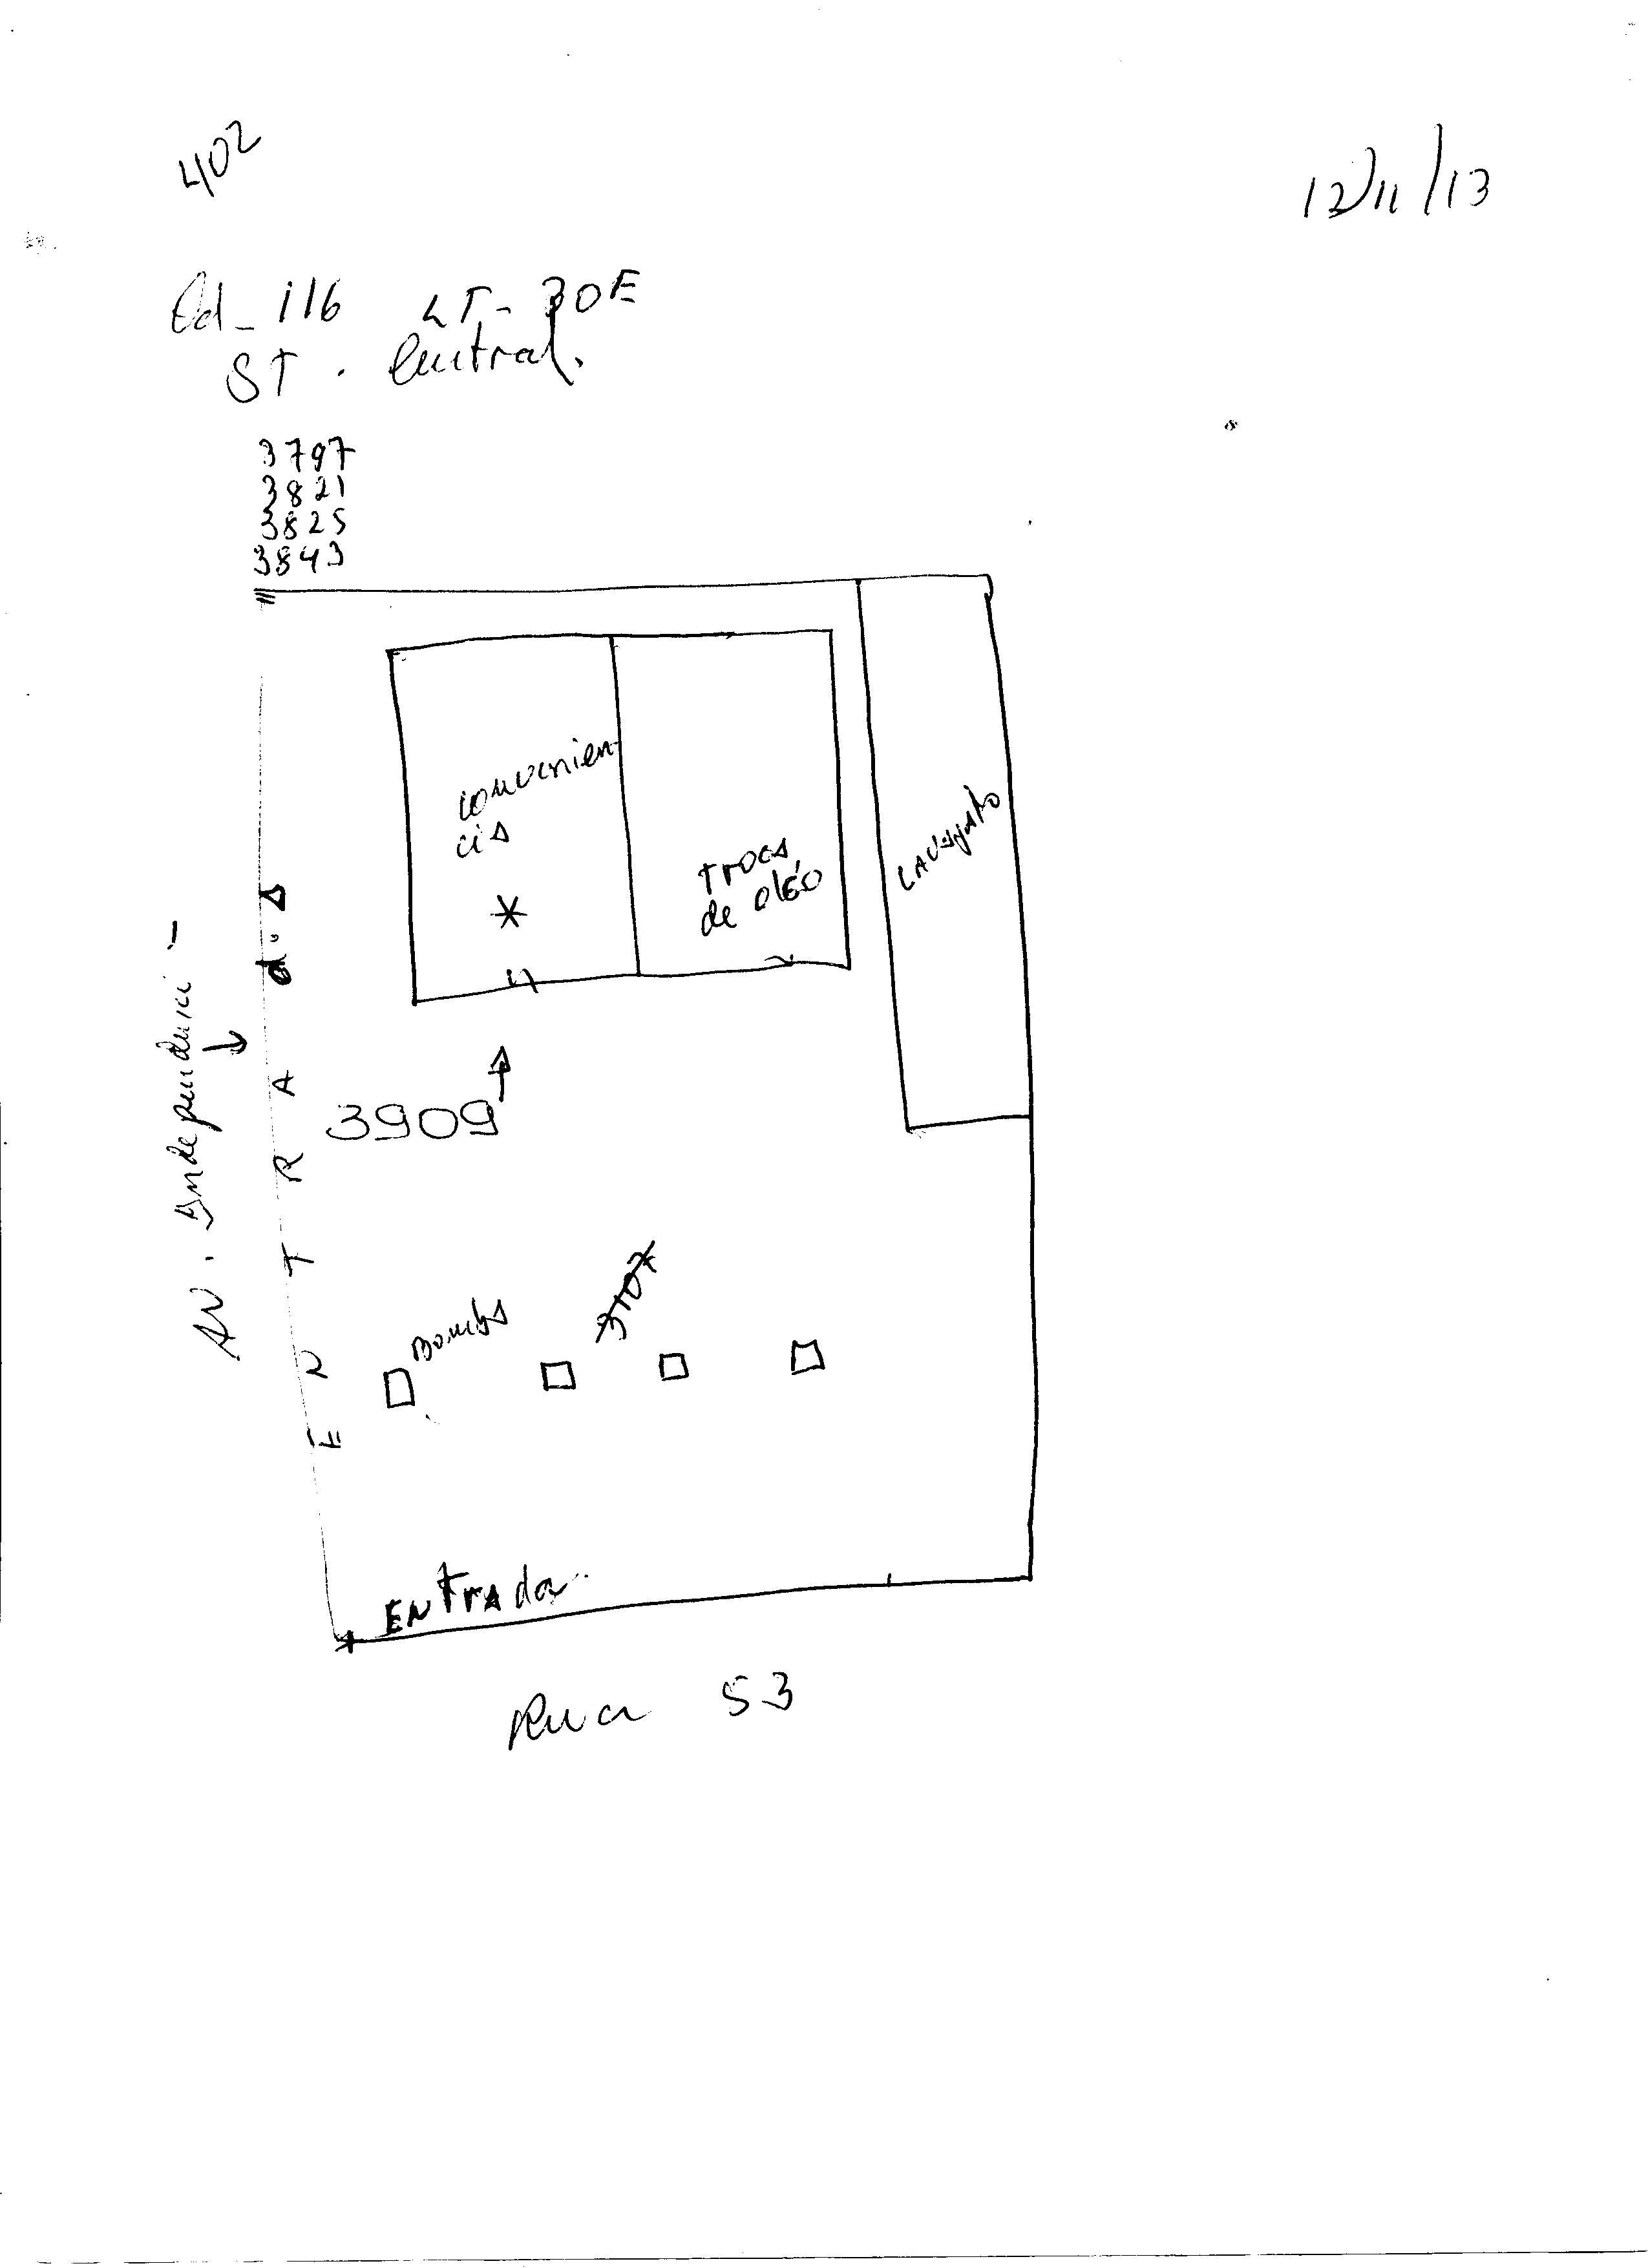 402
12/11/13
Qd_116 LT-30E
ST. Central.
3797
3821
3825
3843
convenien-
cia
*
troca
de oléo
Lavajato
Av. Independenci -
ENTRAdA
3909
Bomba
3107
ENTrAda
Rua 53